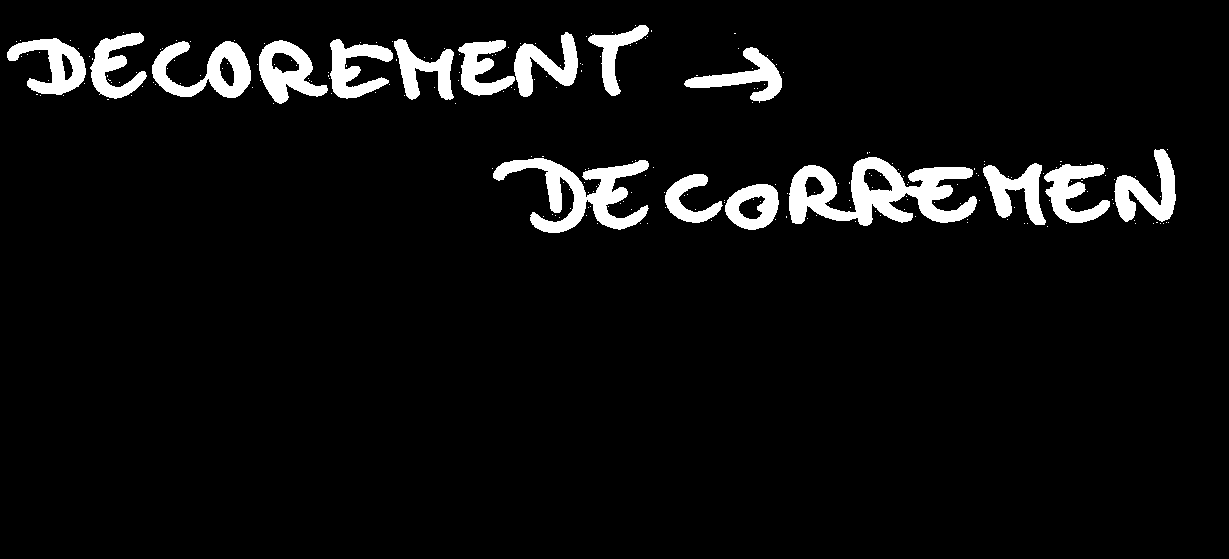 DECOREMENT →
DECORREMEN